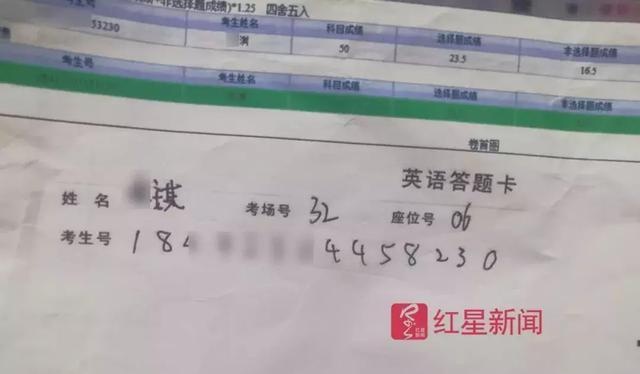 非选择题成绩)*1.25 四舍五入
考生姓名 科目成绩 选择题成绩 非选择题成绩
53230 50 23.5 16.5
考生号 考生姓名 科目成绩 选择题成绩 非选择题成绩
卷首图
英语答题卡
姓名 琪 考场号 32 座位号 06
考生号 18 4458230
红星新闻